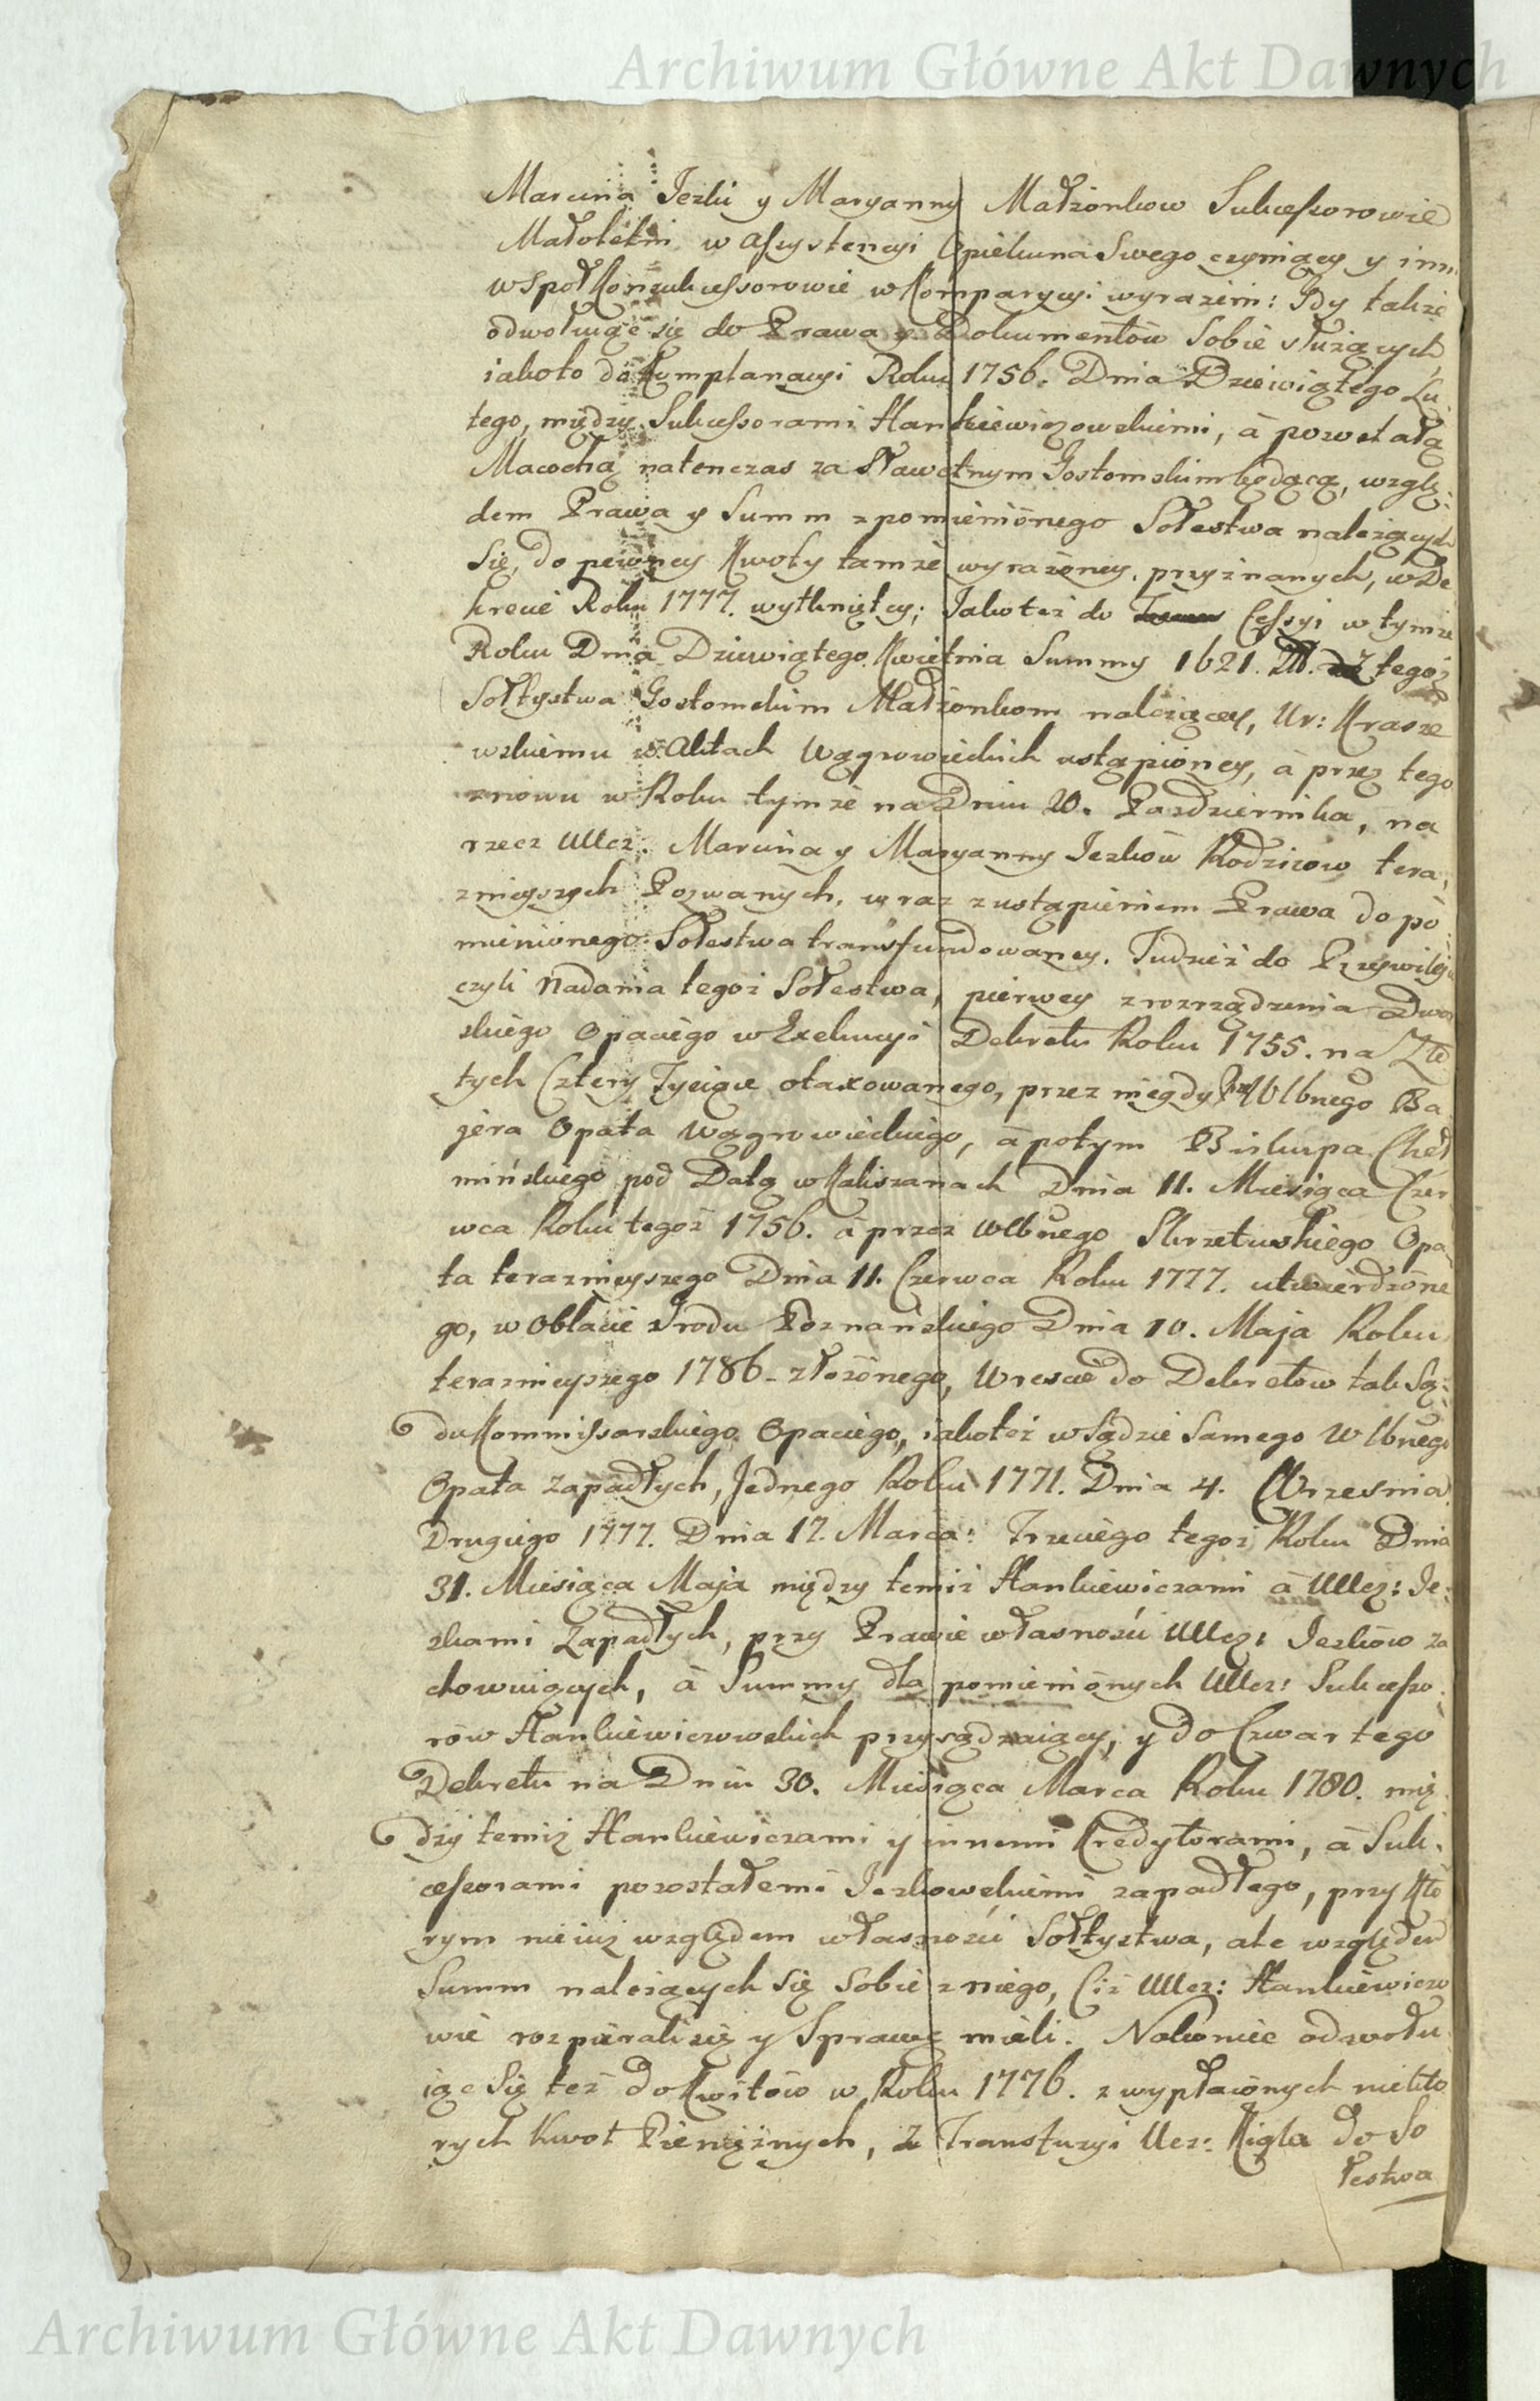 Archiwum Główne Akt Dawnych
Marcina Jezki y Maryanny Małżonkow Sukcessorowie
Małoletni w Assystencyi Opiekuna Swego czyniący y inni
wspoł Konsukcessorowie w Komparycyi wyrażeni: Gdy także
odwołuiąc się do Prawa y Dokumentów Sobie służących,
iakoto do Komplanacyi Roku 1756. Dnia Dziewiątego Lu
tego, między Sukcessorami Hankiewiczowskiemi, à pozostałą
Macochą natenczas za Sławetnym Gostomskim będącą, wzglę:
dem Prawa y Summ z pomienionego Sołestwa należących
Się, do pewney Kwoty tamże wyrażoney, przyznanych, w De
krecie Roku 1777. wytkniętey; Jakoteż do Cessyi w tymże
Roku Dnia Dziewiątego Kwietnia Summy 1621. Zł. z tegoż
Sołtystwa Gostomskim Małżonkom należącey, Ur: Krasze
wskiemu w Aktach Wągrowieckich ustąpioney, à przez tego
znowu w Roku tymże na Dniu 20. Pazdziernika, na
rzecz Ucz. Marcina y Maryanny Jezków Rodzicow tera,
znieyszych Pozwanych, wraz z ustąpieniem Prawa do po
mienionego Sołestwa transfundowaney. Tudzież do Przywileju
czyli Nadania tegoż Sołestwa, pierwey z rozrządzenia Dwor
skiego Opaciego w Exekucyi Dekretu Roku 1755. na Zło
tych Cztery Tysiące otaxowanego, przez niegdy Wlbnego Ba
jera Opata Wągrowieckiego, à potym Biskupa Cheł
mińskiego pod Datą w Kaliszanach Dnia 11. Miesiąca Czer
wca Roku tegoż 1756. à przez Wlbnego Skrzetuskiego Opa
ta teraznieyszego Dnia 11. Czerwca Roku 1777. utwierdzone
go, w Oblacie Grodu Poznańskiego Dnia 10. Maja Roku
teraznieyszego 1786. złożonego, Wrescie do Dekretow tak Są:
du Kommissarskiego Opaciego, iakoteż w Sądzie Samego Wlbnego
Opata zapadłych, Jednego Roku 1771. Dnia 4. Wrzesnia
Drugiego 1777. Dnia 17. Marca: Trzeciego tegoż Roku Dnia
31. Miesiąca Maja między temiż Hankiewiczami à Ucz: Je:
zkami Zapadłych, przy Prawie własności Ucz: Jezków za
chowuiących, à Summy dla pomienionych Ucz: Sukcesso:
row Hankiewiczowskich przysądzaiący, y do Czwartego
Dekretu na Dniu 30. Miesiąca Marca Roku 1780. mię
dzy temiż Hankiewiczami y innemi Kredytorami, à Suk:
cessorami pozostałemi Jezkowskiemi zapadłego, przy Kto
rym nie iuż względem własności Sołtystwa, ale względem
Summ należących Się Sobie z niego, Ciż Ucz: Hankiewiczo
wie rozpierali się y Sprawę mieli. Nakoniec odwołu
iąc Się też do Kwitów w Roku 1776. z wypłaconych niekto
rych Kwot Pieniężnych, Z Transfuzyi Ucz: Kigla do So
łestwa
Archiwum Główne Akt Dawnych